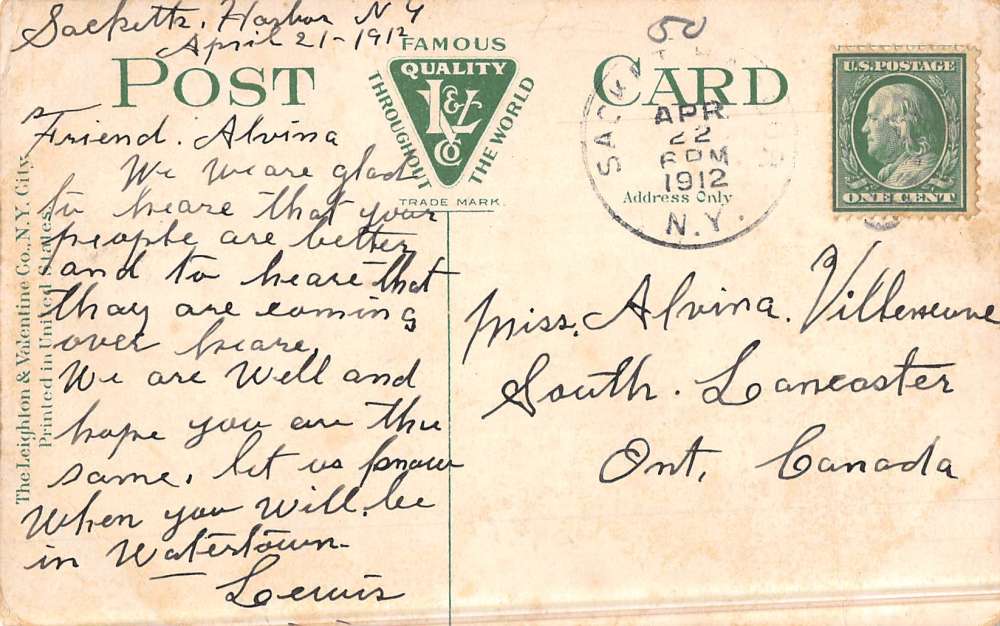 Sacketts, Harbor N Y
April 21 - 1912
POST CARD
FAMOUS
QUALITY
L&V
CO
THROUGHOUT THE WORLD
TRADE MARK.
SACK
APR
22
6 PM
1912
N.Y.
Address Only
U.S. POSTAGE
ONE CENT
Friend. Alvina
We weare glad
to heare that your
people are better
and to heare that
thay are coming
over heare.
We are Well and
hope you are the
same. let us know
When you will, be
in Watertown-
Lewis
Miss. Alvina. Villeneuve
South. Lancaster
Ont, Canada
The Leighton & Valentine Co., N.Y. City.
Printed in United States.